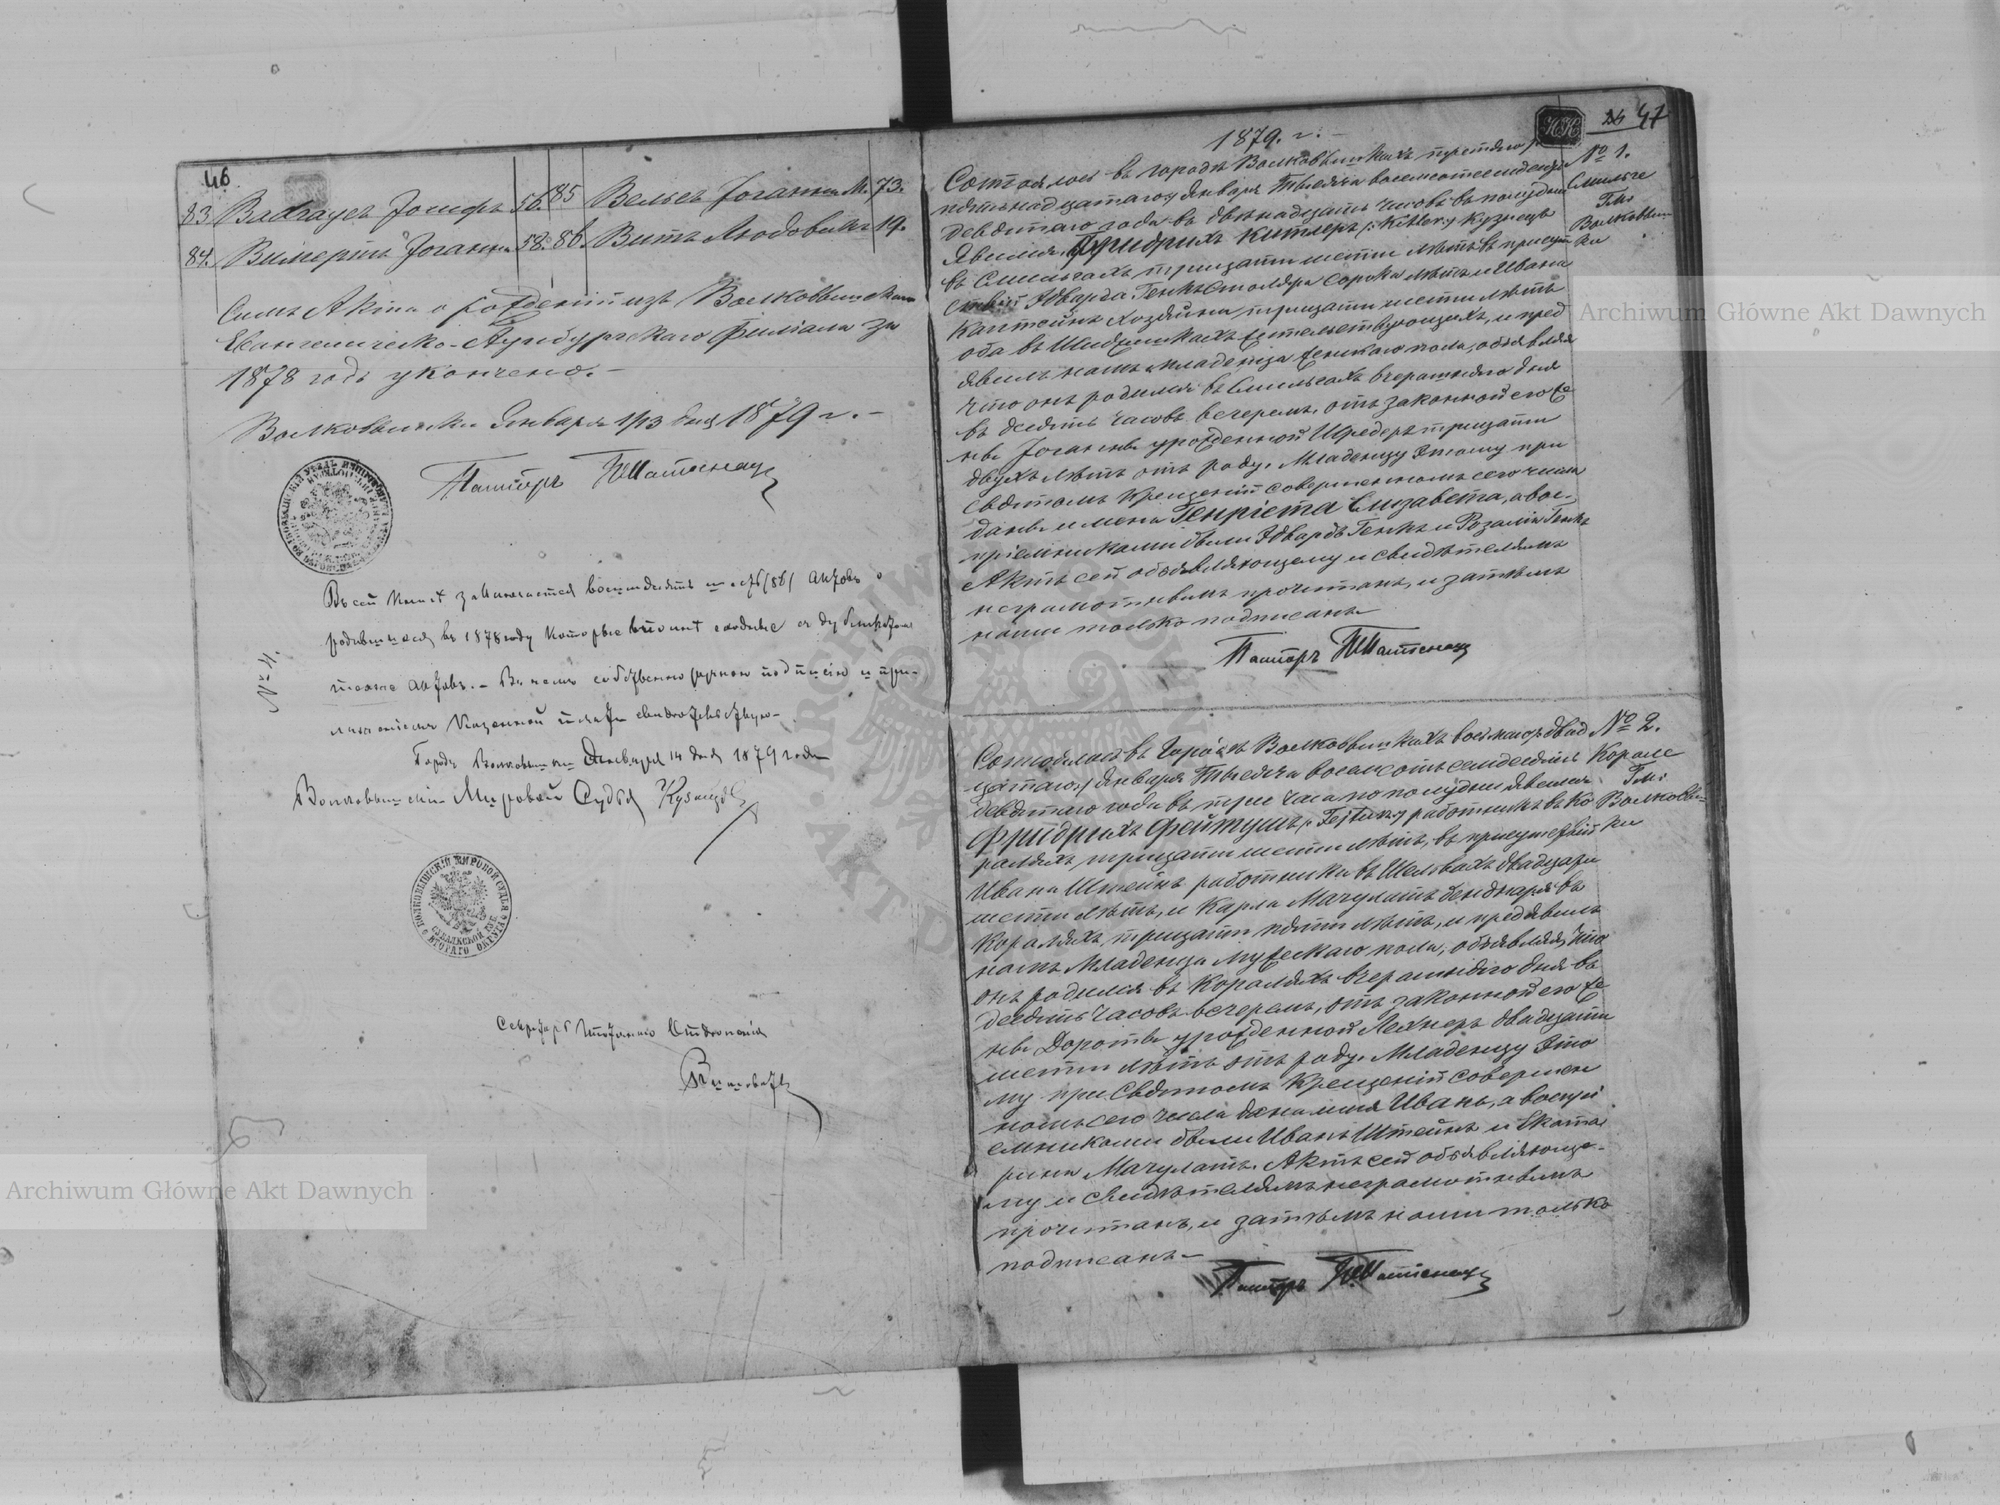 46
83. Вадгауеръ Іосифъ 56. 85 Вельсъ Іоганна М. 73.
84. Виперть Іоганна 58. 86. Витъ Людовикъ 19.
Симъ Акта о рожденіи изъ Волковышскаго
Евангелическо-Аугсбургскаго Филіала за
1878 годъ укончено.-
Волковышки Января 1/13 дня 1879 г.-
Пасторъ
Въ сей книгѣ заключается восемьдесятъ шесть (86) актовъ о
родившихся въ 1878 году которые вполнѣ сходные съ дубликатомъ
таковыхъ актовъ.- Въ чемъ собственноручною подписью и при-
ложеніемъ Казенной печати свидѣтельствую-
Городъ Волковышки Января 14 дня 1879 года
Волковышскій Мировой Судья Кузнецовъ
Секретарь Ипотечнаго Отдѣленія
47
1879. г. -
№ 1.
Состоялось въ городѣ Волковышкахъ третьяго /
пятьнадцатаго/ Января Тысяча восемьсотъ семьдесятъ
девятаго года въ двѣнадцать часовъ въ полудни
Явился, Фридрихъ Китлеръ /: Kitler:/ Кузнецъ
въ Смильгахъ тридцати шести лѣтъ въ присут
ствіи Эдварда Генкъ столяра сорока лѣтъ и Ивана
Кантойнъ хозяина тридцати шести лѣтъ
оба въ жительствующихъ, и пред
явилъ намъ младенца женскаго пола, объявляя
что онъ родился въ Смильгахъ вчерашняго дня
въ десять часовъ вечеромъ, отъ законной его же
ны Іоганны урожденной Шредеръ тридцати
двухъ лѣтъ отъ роду. Младенцу Этому при
Святомъ Крещеніи совершенномъ сего числа
даны имена Генріета Елизавета, а вос-
пріемниками были Эдвардъ Генкъ и Розалія Генкъ
Актъ сей объявляющему и свидѣтелямъ
неграмотнымъ прочитанъ, и затѣмъ
нами только подписанъ
Пасторъ
Смильге
Гм:
Волковыш
ки
№ 2.
Состоялось въ Городѣ Волковышкахъ восьмаго/двад
цатаго/ Января Тысяча восемьсотъ семьдесятъ
девятаго года въ три часа по полудни явился
Фридрихъ Фейтушъ /: Fejtusz:/ работникъ въ Ко
раляхъ, тридцати шести лѣтъ, въ присутствіи
Ивана Штейнъ работника въ Шельвахъ двадцати
шести лѣтъ, и Карла Мачулатъ бенднаря въ
Кораляхъ, тридцати пяти лѣтъ, и предявилъ
намъ Младенца мужескаго пола, объявляя, что
онъ родился въ Кораляхъ вчерашняго дня въ
десять часовъ вечеромъ, отъ законной его же
ны Доротѣ урожденной Лехнеръ двадцати
шести лѣтъ отъ роду. Младенцу Это
му при Святомъ Крещеніи совершен
номъ сего числа дано имя Иванъ, а воспрі
емниками были Иванъ Штейнъ и Екате
рина Мачулатъ. Актъ сей объявляюще-
му и свидѣтелямъ неграмотнымъ
прочитанъ, и затѣмъ нами только
подписанъ-
Пасторъ
Корале
Гм:
Волковыш-
ки
Archiwum Główne Akt Dawnych
Archiwum Główne Akt Dawnych